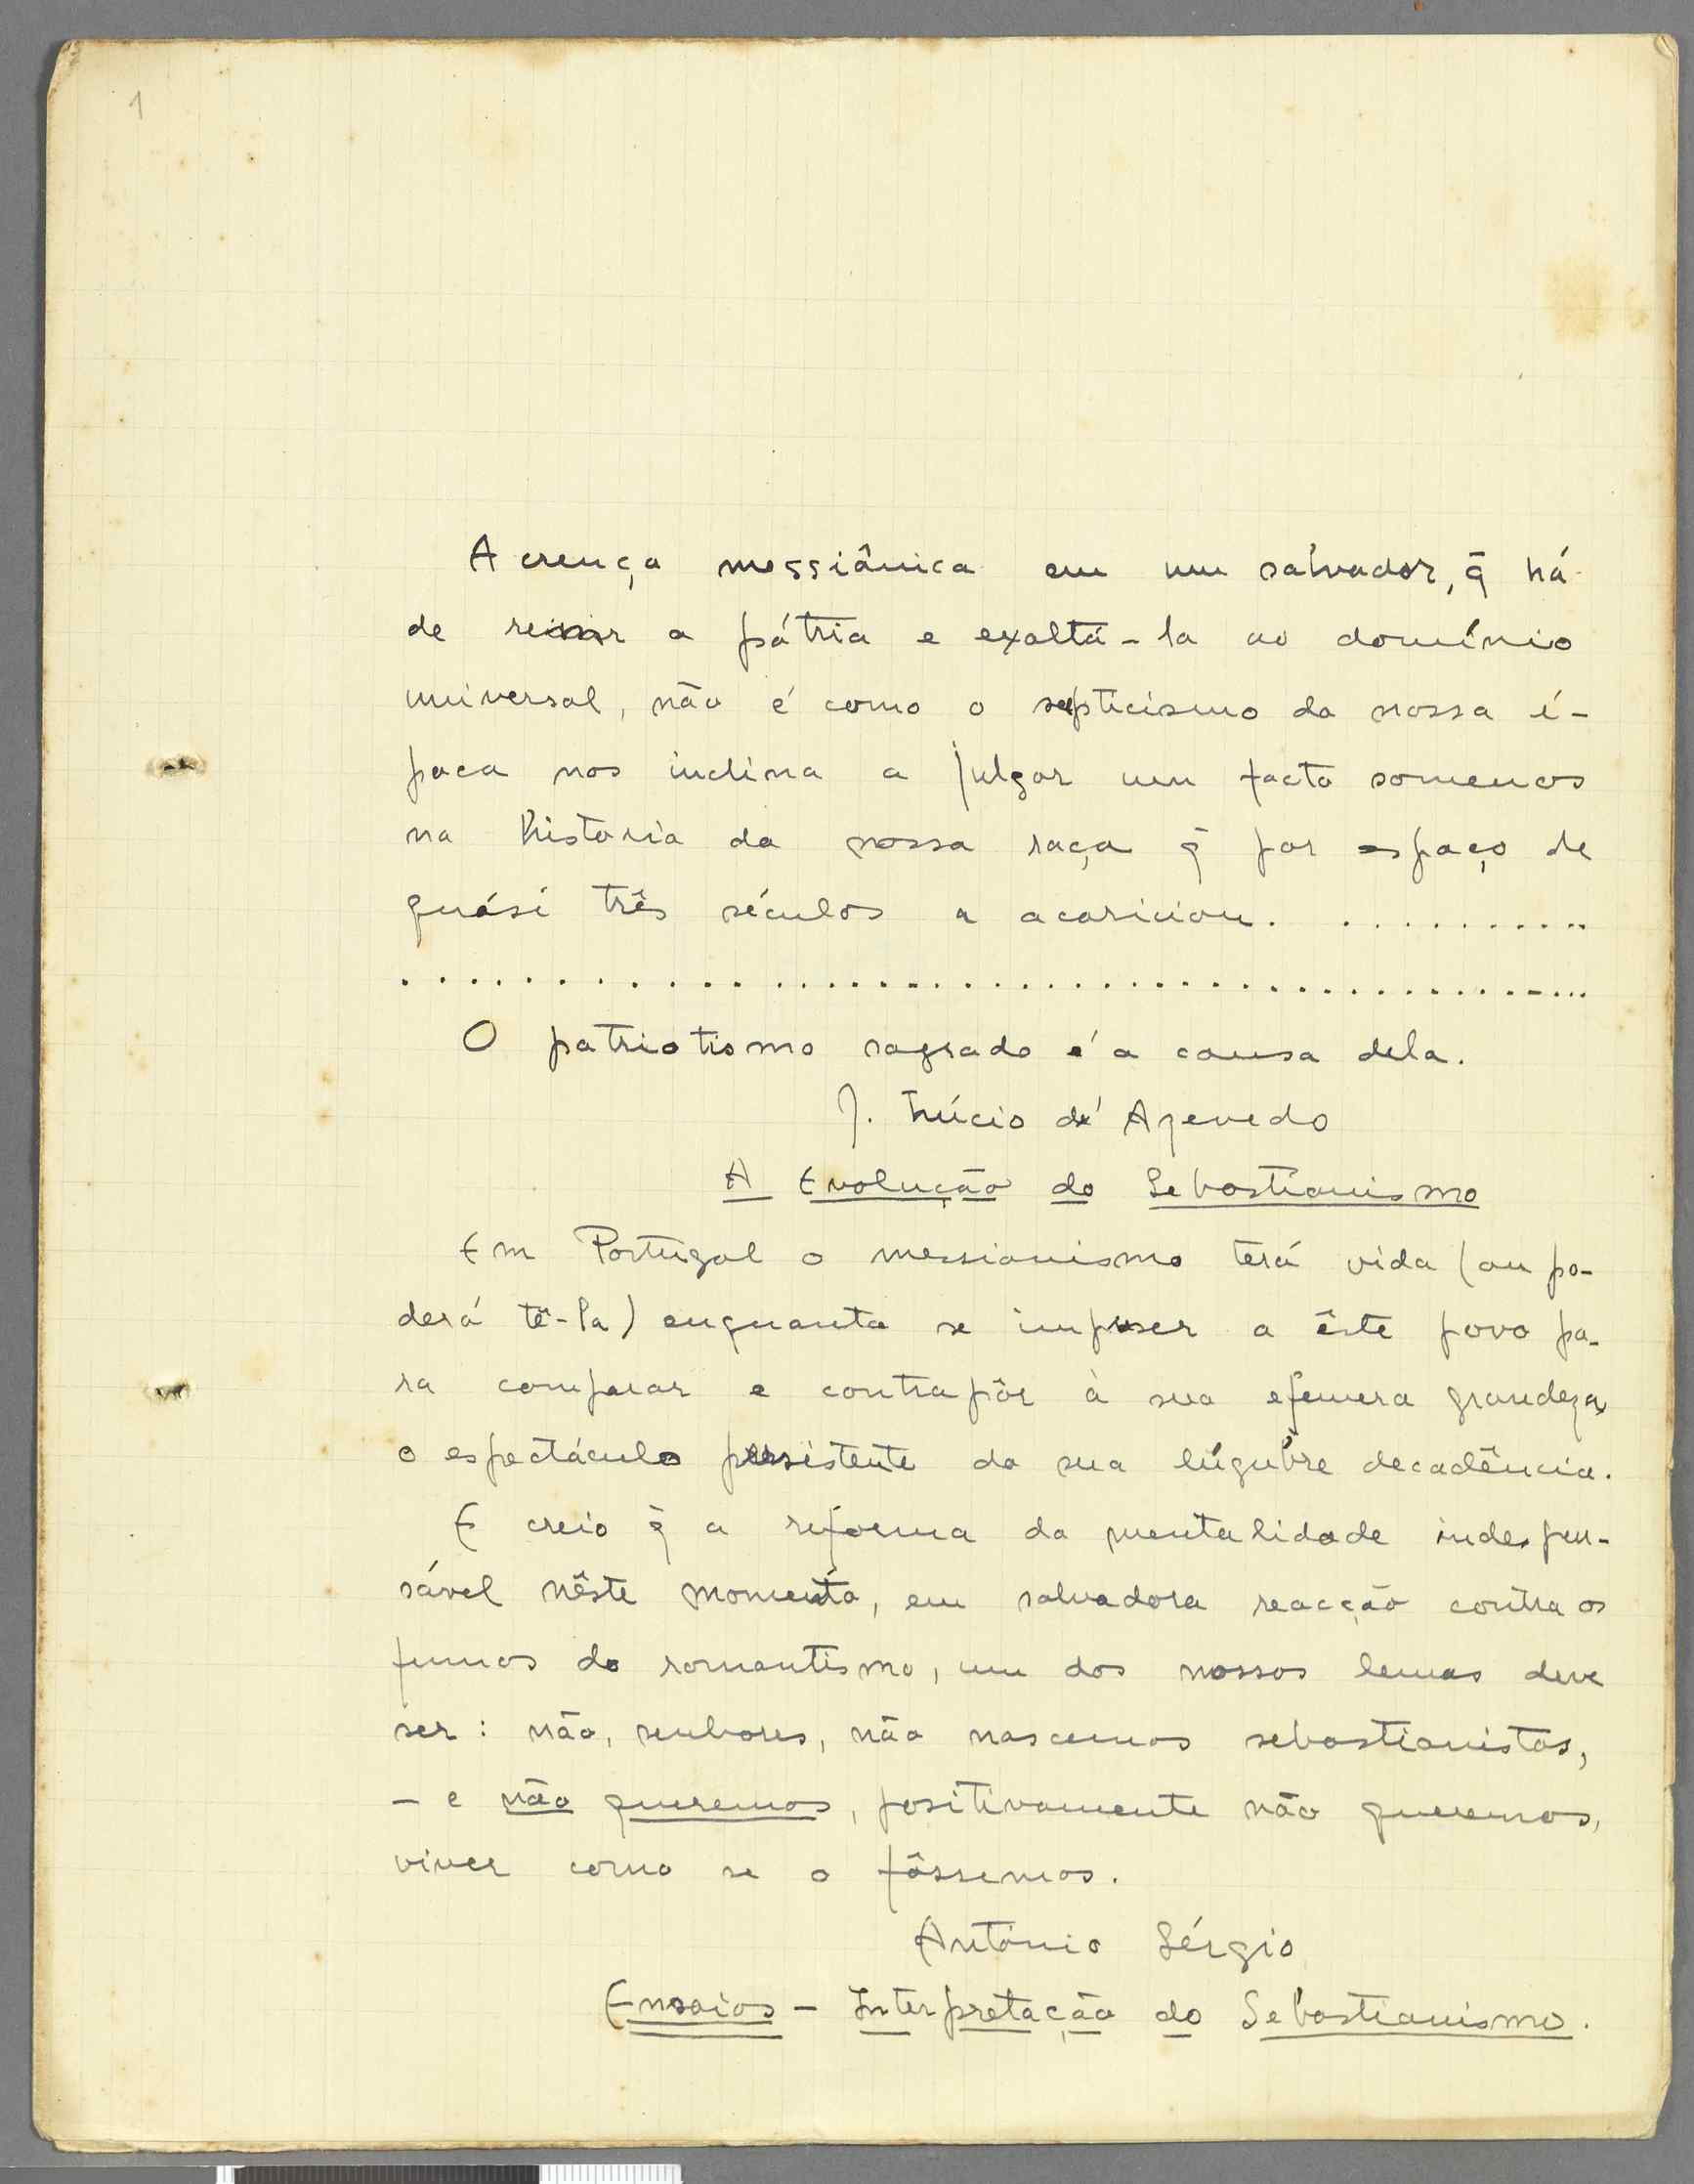 1
A crença messiânica em um salvador, q̃ há
de remir a pátria e exaltá-la ao domínio
universal, não é como o septicismo da nossa é-
poca nos inclina a julgar um facto somenos
na historia da nossa raça q̃ por espaço de
quási três séculos a acariciou. . . . . . . . . . . .
. . . . . . . . . . . . . . . . . . . . . . . . . . . . . . . . . . . . . . . .
O patriotismo sagrado é a causa dela.
J. Lúcio d'Azevedo
A Evolução do Sebastianismo
Em Portugal o messianismo terá vida (ou po-
derá tê-la) enquanto se impuser a êste povo pa-
ra comparar e contrapôr à sua efemera grandeza,
o espectáculo persistente da sua lúgubre decadência.
E creio q̃ a reforma da mentalidade indespen-
sável nêste momento, em salvadora reacção contra os
fumos do romantismo, um dos nossos lemas deve
ser: não, senhores, não nascemos sebastianistas,
- e não queremos, positivamente não queremos,
viver como se o fôssemos.
António Sérgio
Ensaios - Interpretação do Sebastianismo.